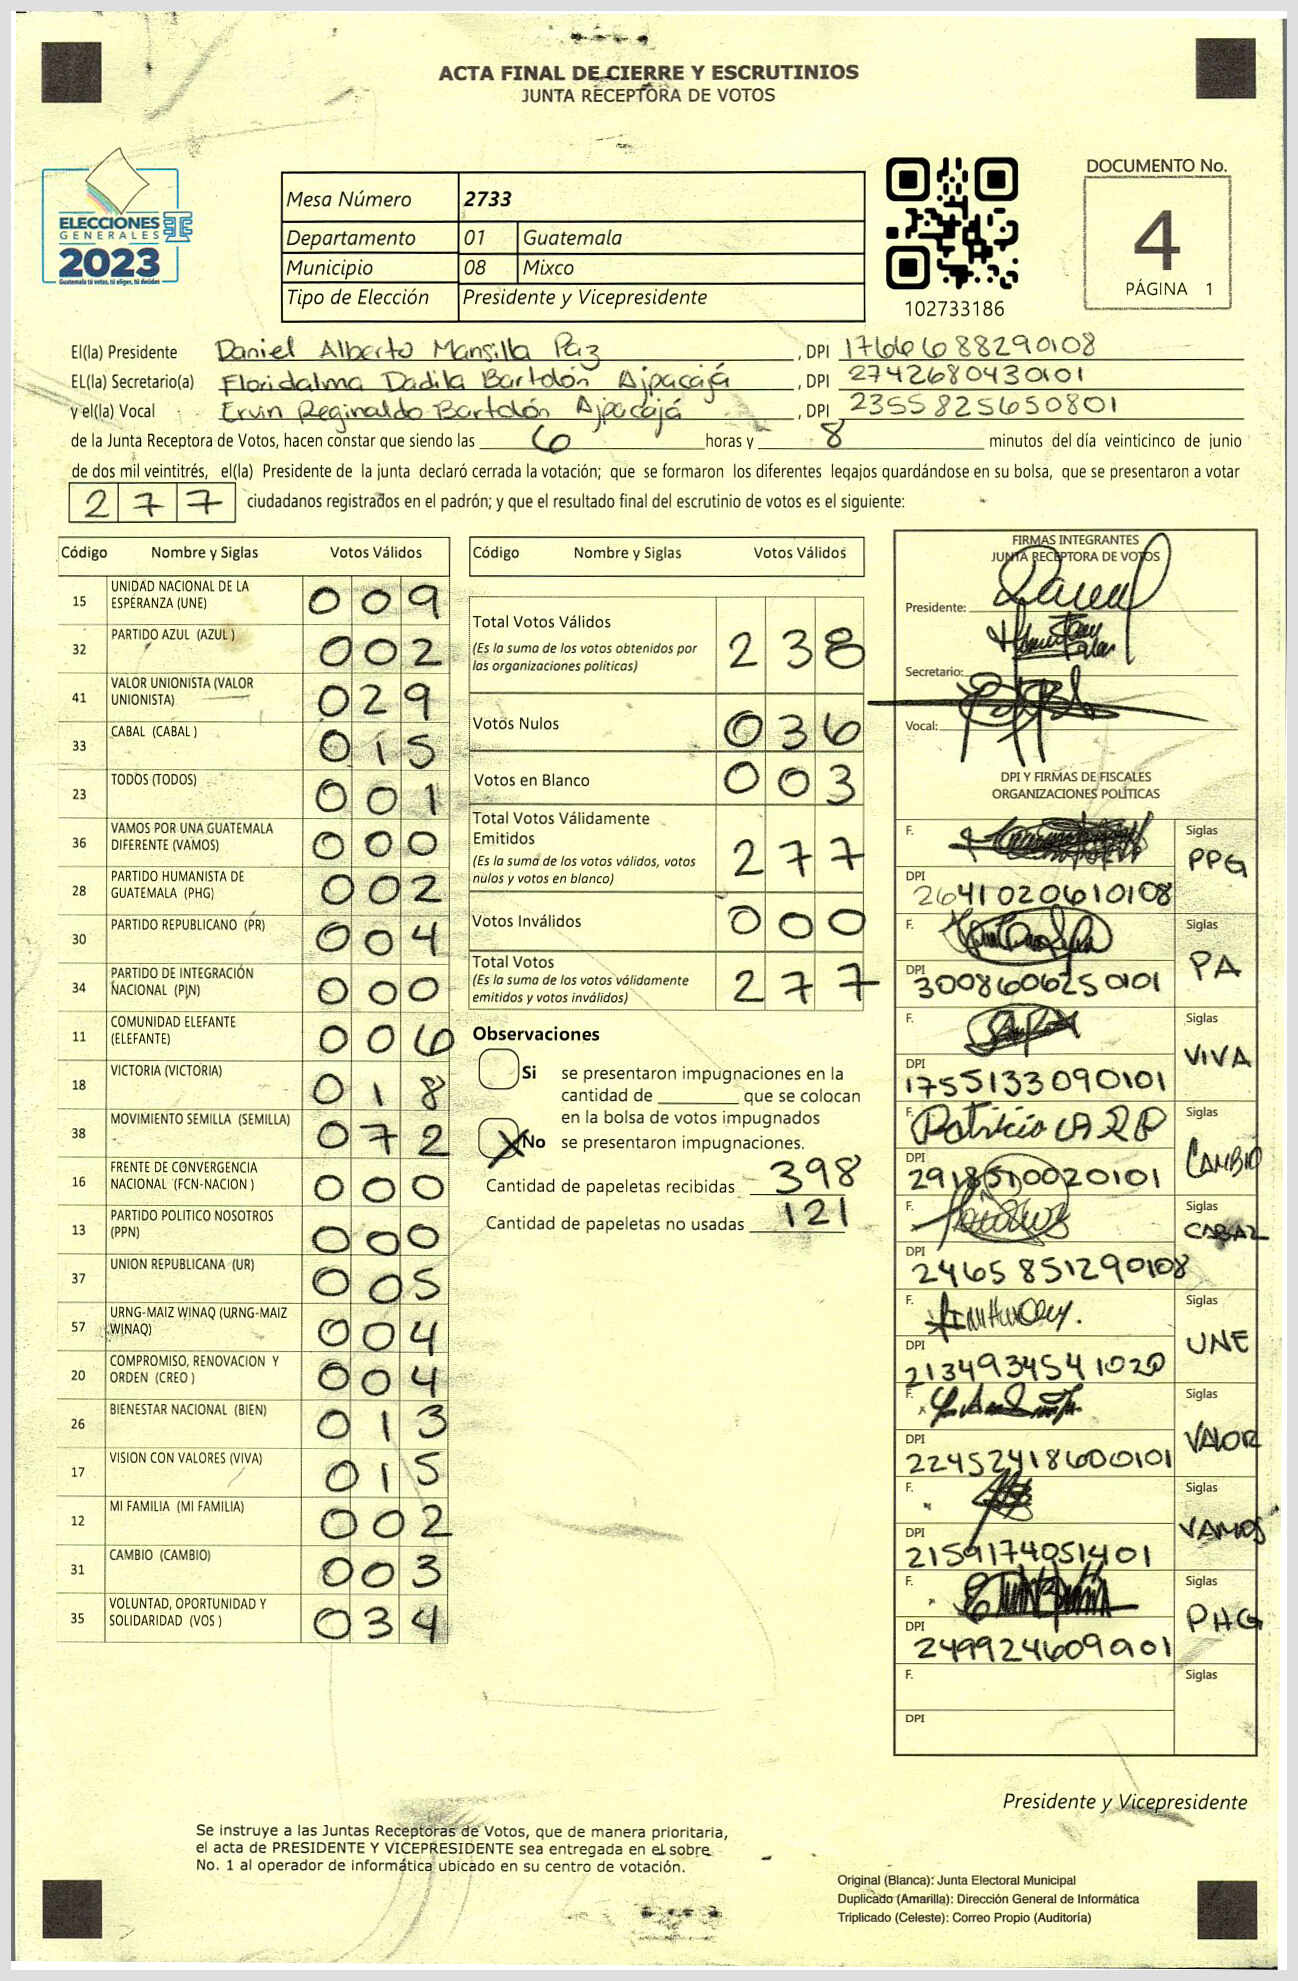 ACTA FINAL DE CIERRE Y ESCRUTINIOS
JUNTA RECEPTORA DE VOTOS
ELECCIONES
GENERALES
2023
Guatemala tú votas, tú eliges, tú decides
Mesa Número 2733
Departamento 01 Guatemala
Municipio 08 Mixco
Tipo de Elección Presidente y Vicepresidente
102733186
DOCUMENTO No.
4
PÁGINA 1
El(la) Presidente Daniel Alberto Mansilla Paz, DPI 1766688290108
EL(la) Secretario(a) Floridalma Dadila Bartolón Ajpacajá, DPI 2742680430101
y el(la) Vocal Ervin Reginaldo Bartolón Ajpacajá, DPI 2355825650801
de la Junta Receptora de Votos, hacen constar que siendo las 6 horas y 8 minutos del día veinticinco de junio
de dos mil veintitrés, el(la) Presidente de la junta declaró cerrada la votación; que se formaron los diferentes legajos guardándose en su bolsa, que se presentaron a votar
277 ciudadanos registrados en el padrón; y que el resultado final del escrutinio de votos es el siguiente:
Código Nombre y Siglas Votos Válidos
15 UNIDAD NACIONAL DE LA ESPERANZA (UNE) 009
32 PARTIDO AZUL (AZUL ) 002
41 VALOR UNIONISTA (VALOR UNIONISTA) 029
33 CABAL (CABAL ) 015
23 TODOS (TODOS) 001
36 VAMOS POR UNA GUATEMALA DIFERENTE (VAMOS) 000
28 PARTIDO HUMANISTA DE GUATEMALA (PHG) 002
30 PARTIDO REPUBLICANO (PR) 004
34 PARTIDO DE INTEGRACIÓN NACIONAL (PIN) 000
11 COMUNIDAD ELEFANTE (ELEFANTE) 006
18 VICTORIA (VICTORIA) 018
38 MOVIMIENTO SEMILLA (SEMILLA) 072
16 FRENTE DE CONVERGENCIA NACIONAL (FCN-NACION ) 000
13 PARTIDO POLITICO NOSOTROS (PPN) 000
37 UNION REPUBLICANA (UR) 005
57 URNG-MAIZ WINAQ (URNG-MAIZ WINAQ) 004
20 COMPROMISO, RENOVACION Y ORDEN (CREO ) 004
26 BIENESTAR NACIONAL (BIEN) 013
17 VISION CON VALORES (VIVA) 015
12 MI FAMILIA (MI FAMILIA) 002
31 CAMBIO (CAMBIO) 003
35 VOLUNTAD, OPORTUNIDAD Y SOLIDARIDAD (VOS ) 034
Código Nombre y Siglas Votos Válidos
Total Votos Válidos 238
(Es la suma de los votos obtenidos por
las organizaciones políticas)
Votos Nulos 036
Votos en Blanco 003
Total Votos Válidamente
Emitidos 277
(Es la suma de los votos válidos, votos
nulos y votos en blanco)
Votos Inválidos 000
Total Votos 277
(Es la suma de los votos válidamente
emitidos y votos inválidos)
Observaciones
Si se presentaron impugnaciones en la
cantidad de ________ que se colocan
en la bolsa de votos impugnados
X No se presentaron impugnaciones.
Cantidad de papeletas recibidas 398
Cantidad de papeletas no usadas 121
FIRMAS INTEGRANTES
JUNTA RECEPTORA DE VOTOS
Presidente:
Secretario:
Vocal:
DPI Y FIRMAS DE FISCALES
ORGANIZACIONES POLÍTICAS
F. Siglas PPG
DPI 2641020610108
F. Siglas PA
DPI 3008606250101
F. Siglas VIVA
DPI 1755133090101
F. Patricia Siglas CAMBIO
DPI 2918510020101
F. Siglas CABAL
DPI 2465851290108
F. Siglas UNE
DPI 2134934541020
F. Siglas VALOR
DPI 2245241860101
F. Siglas VAMOS
DPI 2159174051401
F. Siglas PHG
DPI 2499246090101
F. Siglas
DPI
Presidente y Vicepresidente
Se instruye a las Juntas Receptoras de Votos, que de manera prioritaria,
el acta de PRESIDENTE Y VICEPRESIDENTE sea entregada en el sobre
No. 1 al operador de informática ubicado en su centro de votación.
Original (Blanca): Junta Electoral Municipal
Duplicado (Amarilla): Dirección General de Informática
Triplicado (Celeste): Correo Propio (Auditoría)